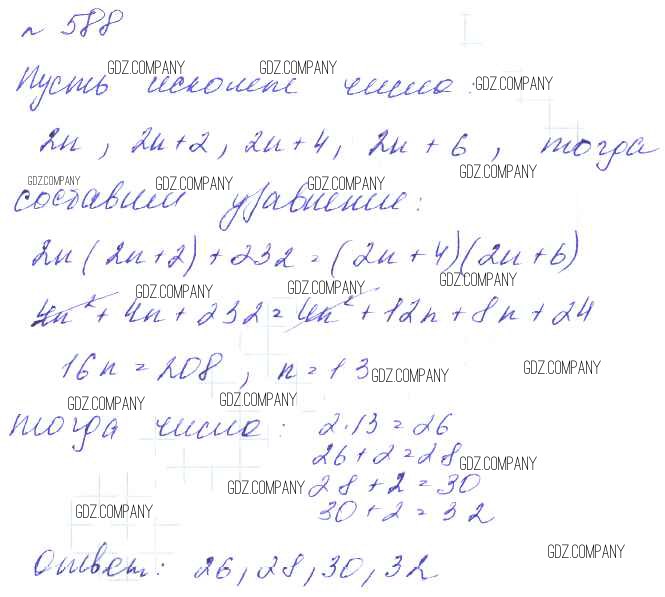 № 588
GDZ.COMPANY GDZ.COMPANY
Пусть искомые числа: GDZ.COMPANY
2n, 2n+2, 2n+4, 2n+6, тогда
GDZ.COMPANY
GDZ.COMPANY GDZ.COMPANY GDZ.COMPANY
составим уравнение:
2n(2n+2)+232=(2n+4)(2n+6)
GDZ.COMPANY GDZ.COMPANY GDZ.COMPANY
4n²+4n+232=4n²+12n+8n+24
16n=208, n=13
GDZ.COMPANY GDZ.COMPANY
GDZ.COMPANY GDZ.COMPANY
тогда числа: 2·13=26
26+2=28
GDZ.COMPANY
GDZ.COMPANY 28+2=30
GDZ.COMPANY 30+2=32
GDZ.COMPANY
Ответ: 26, 28, 30, 32